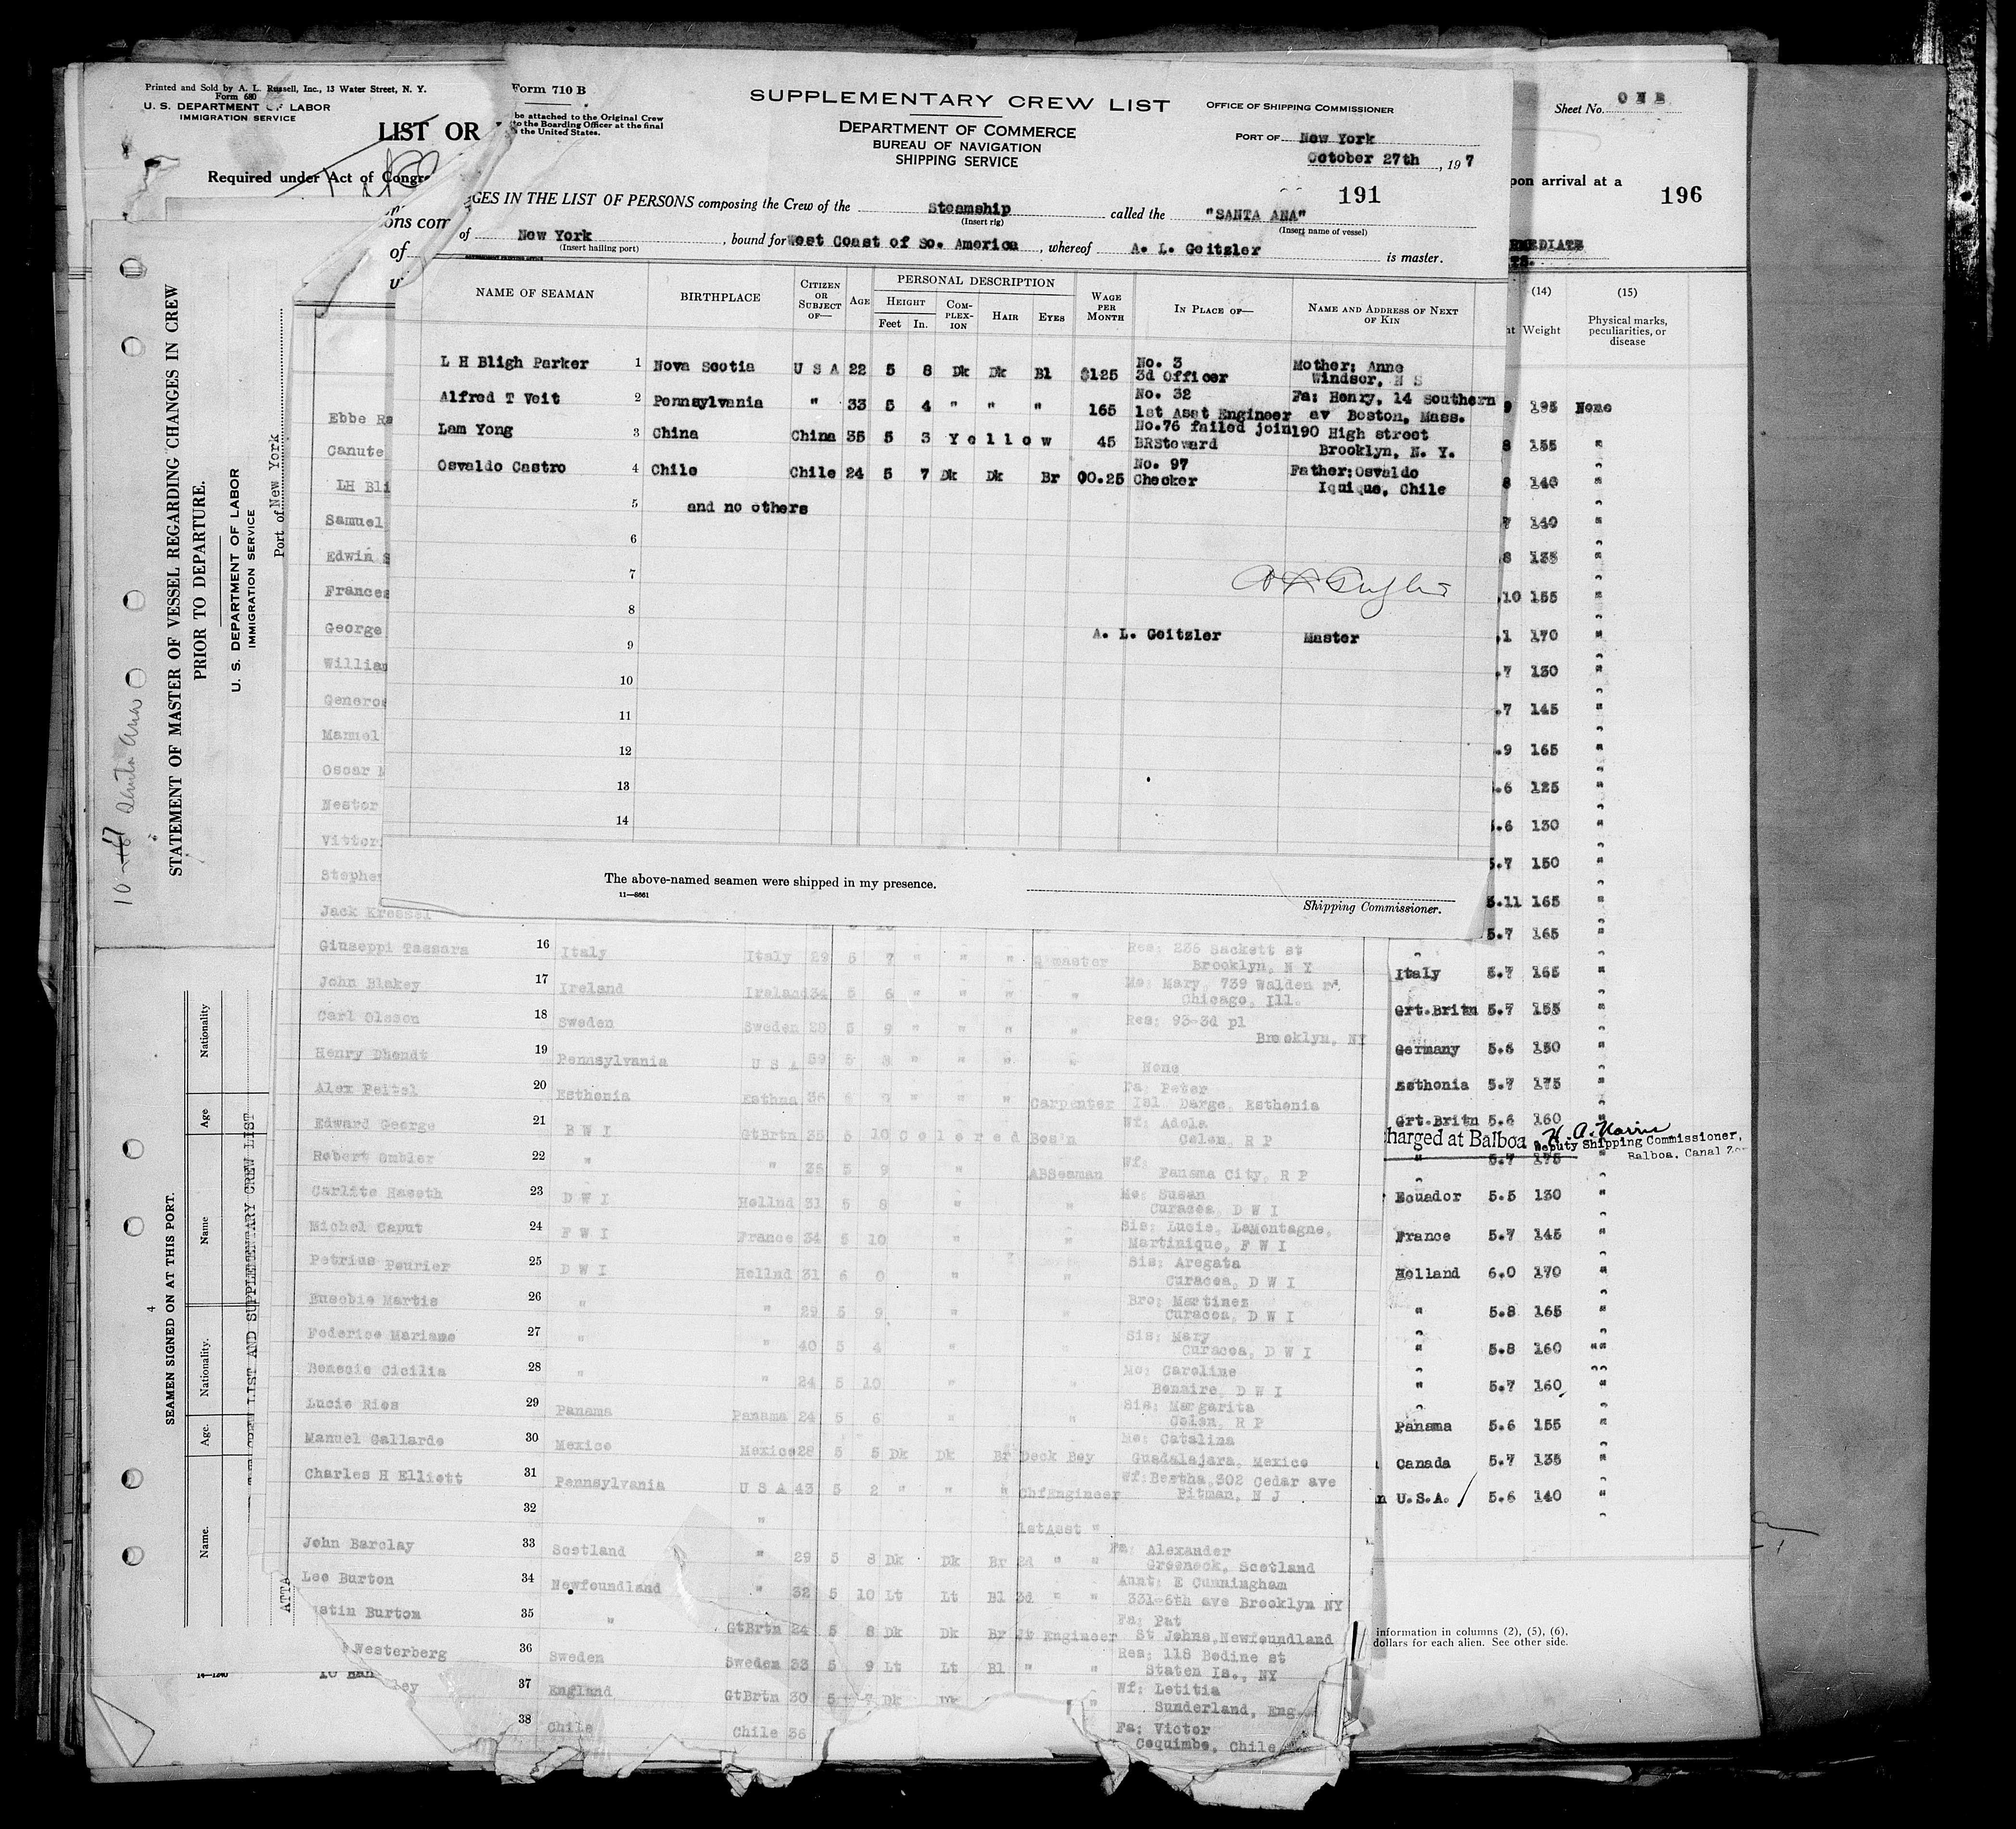 Printed and Sold by A. L. Russell, Inc., 13 Water Street, N. Y.
Form 680
U. S. DEPARTMENT OF LABOR
IMMIGRATION SERVICE
LIST OR
Required under Act of Congre
ons com
of
Form 710 B
be attached to the Original Crew
to the Boarding Officer at the final
the United States.
SUPPLEMENTARY CREW LIST
DEPARTMENT OF COMMERCE
BUREAU OF NAVIGATION
SHIPPING SERVICE
OFFICE OF SHIPPING COMMISSIONER
PORT OF New York
October 27th, 197
191
GES IN THE LIST OF PERSONS composing the Crew of the Steamship called the "SANTA ANA"
(Insert rig) (Insert name of vessel)
of New York, bound for West Coast of So. America, whereof A. L. Geitzler is master.
(Insert hailing port)
NAME OF SEAMAN BIRTHPLACE CITIZEN OR SUBJECT OF— AGE PERSONAL DESCRIPTION WAGE PER MONTH IN PLACE OF— NAME AND ADDRESS OF NEXT OF KIN
HEIGHT COMPLEXION HAIR EYES
Feet In.
L H Bligh Parker 1 Nova Scotia U S A 22 5 8 Dk Dk Bl $125 No. 3 3d Officer Mother: Anne Windsor, N S
Alfred T Veit 2 Pennsylvania " 33 5 4 " " " 165 No. 32 1st Asst Engineer Fa: Henry, 14 Southern av Boston, Mass.
Lam Yong 3 China China 35 5 3 Yellow 45 No.76 failed join BRSteward 190 High street Brooklyn, N. Y.
Osvaldo Castro 4 Chile Chile 24 5 7 Dk Dk Br 00.25 No. 97 Checker Father:Osvaldo Iquique, Chile
5 and no others
6
7
8
A. L. Geitzler Master
9
10
11
12
13
14
The above-named seamen were shipped in my presence.
11—8661
Shipping Commissioner.
Sheet No. ONE
pon arrival at a
196
(14) (15)
Weight Physical marks, peculiarities, or disease
Ebbe 195 None
Canute 8 155 "
LH Bli 8 140 "
Samuel 7 140 "
Edwin S 8 135 "
Frances .10 155 "
George .1 170 "
William .7 130 "
Generos .7 145 "
Manuel .9 165 "
Oscar .6 125 "
Nestor .6 130 "
Vittor 5.7 150 "
Stephen 5.11 165 "
Jack Kressel 5.7 165
Giuseppi Tassara 16 Italy Italy 29 5 7 " " " Q master Res: 235 Sackett st Brooklyn, N Y
John Blakey 17 Ireland Ireland 34 5 6 " " " " Mo: Mary, 739 Walden rd. Chicago, Ill.
Carl Olsson 18 Sweden Sweden 28 5 9 " " " " Res: 93-3d pl Brooklyn, NY
Henry Dhondt 19 Pennsylvania U S A 39 5 8 " " " " None
Alex Peitel 20 Esthonia Esthna 36 5 9 " " " Carpenter Fa: Peter Isl Dargo, Esthonia
Edward George 21 B W I GtBrtn 35 5 10 Colored Bos'n Wf: Adela Colon, R P
Robert Ombler 22 " " 35 5 9 " ABSeaman Wf: Panama City, R P
Carlito Haseth 23 D W I Hollnd 31 5 8 " " Mo: Susan Curacoa, D W I
Michel Caput 24 F W I France 34 5 10 " " Sis: Lucie, LaMontagne, Martinique, F W I
Petrius Pourier 25 D W I Hollnd 31 6 0 " " Sis: Aregata Curacoa, D W I
Eusobio Martis 26 " " 29 5 9 " " Bro: Martinez Curacoa, D W I
Foderico Mariano 27 " 40 5 4 " " Sis: Mary Curacoa, D W I
Bonecio Cicilia 28 " " 24 5 10 " " Mo: Caroline Bonaire, D W I
Lucio Rios 29 Panama Panama 24 5 6 " " Sis: Margarita Colon, R P
Manuel Gallardo 30 Mexico Mexico 28 5 5 Dk Dk Br Deck Boy Mo: Catalina Guadalajara, Mexico
Charles H Elliott 31 Pennsylvania U S A 43 5 2 " " " ChfEngineer Wf:Bertha, 302 Cedar ave Pitman, N J
32 " 1stAsst "
John Barclay 33 Scotland " 29 5 8 Dk Dk Br 2d " " Fa: Alexander Greenock, Scotland
Leo Burton 34 Newfoundland " 32 5 10 Lt Lt Bl 3d " " Aunt: E Cunningham 331-6th ave Brooklyn NY
ustin Burton 35 " GtBrtn 24 5 8 Dk Dk Br Jr Engineer Fa: Pat St Johns, Newfoundland
Westerberg 36 Sweden Sweden 33 5 9 Lt Lt Bl " " Res: 118 Bodine st Staten Is., NY
ey 37 England GtBrtn 30 5 7 Dk Dk " Wf: Letitia Sunderland, Eng.
38 Chile Chile 36 Fa: Victor Coquimbo, Chile
Italy 5.7 165 "
Grt.Britn 5.7 155 "
Germany 5.6 150 "
Esthonia 5.7 175 "
Grt.Britn 5.6 160 "
harged at Balboa
Deputy Shipping Commissioner,
Balboa, Canal Zon
" 5.7 175 "
Ecuador 5.5 130 "
France 5.7 145 "
Holland 6.0 170 "
" 5.8 165 "
" 5.8 160 "
" 5.7 160 "
Panama 5.6 155 "
Canada 5.7 135 "
U.S.A. 5.6 140 "
information in columns (2), (5), (6),
dollars for each alien. See other side.
STATEMENT OF MASTER OF VESSEL REGARDING CHANGES IN CREW
PRIOR TO DEPARTURE.
U. S. DEPARTMENT OF LABOR
IMMIGRATION SERVICE
Port of New York
Santa Ana
SEAMEN SIGNED ON AT THIS PORT.
4
Name. Age. Nationality. Name Age Nationality
CREW LIST AND SUPPLEMENTARY CREW LIST
ATTA
14—1240